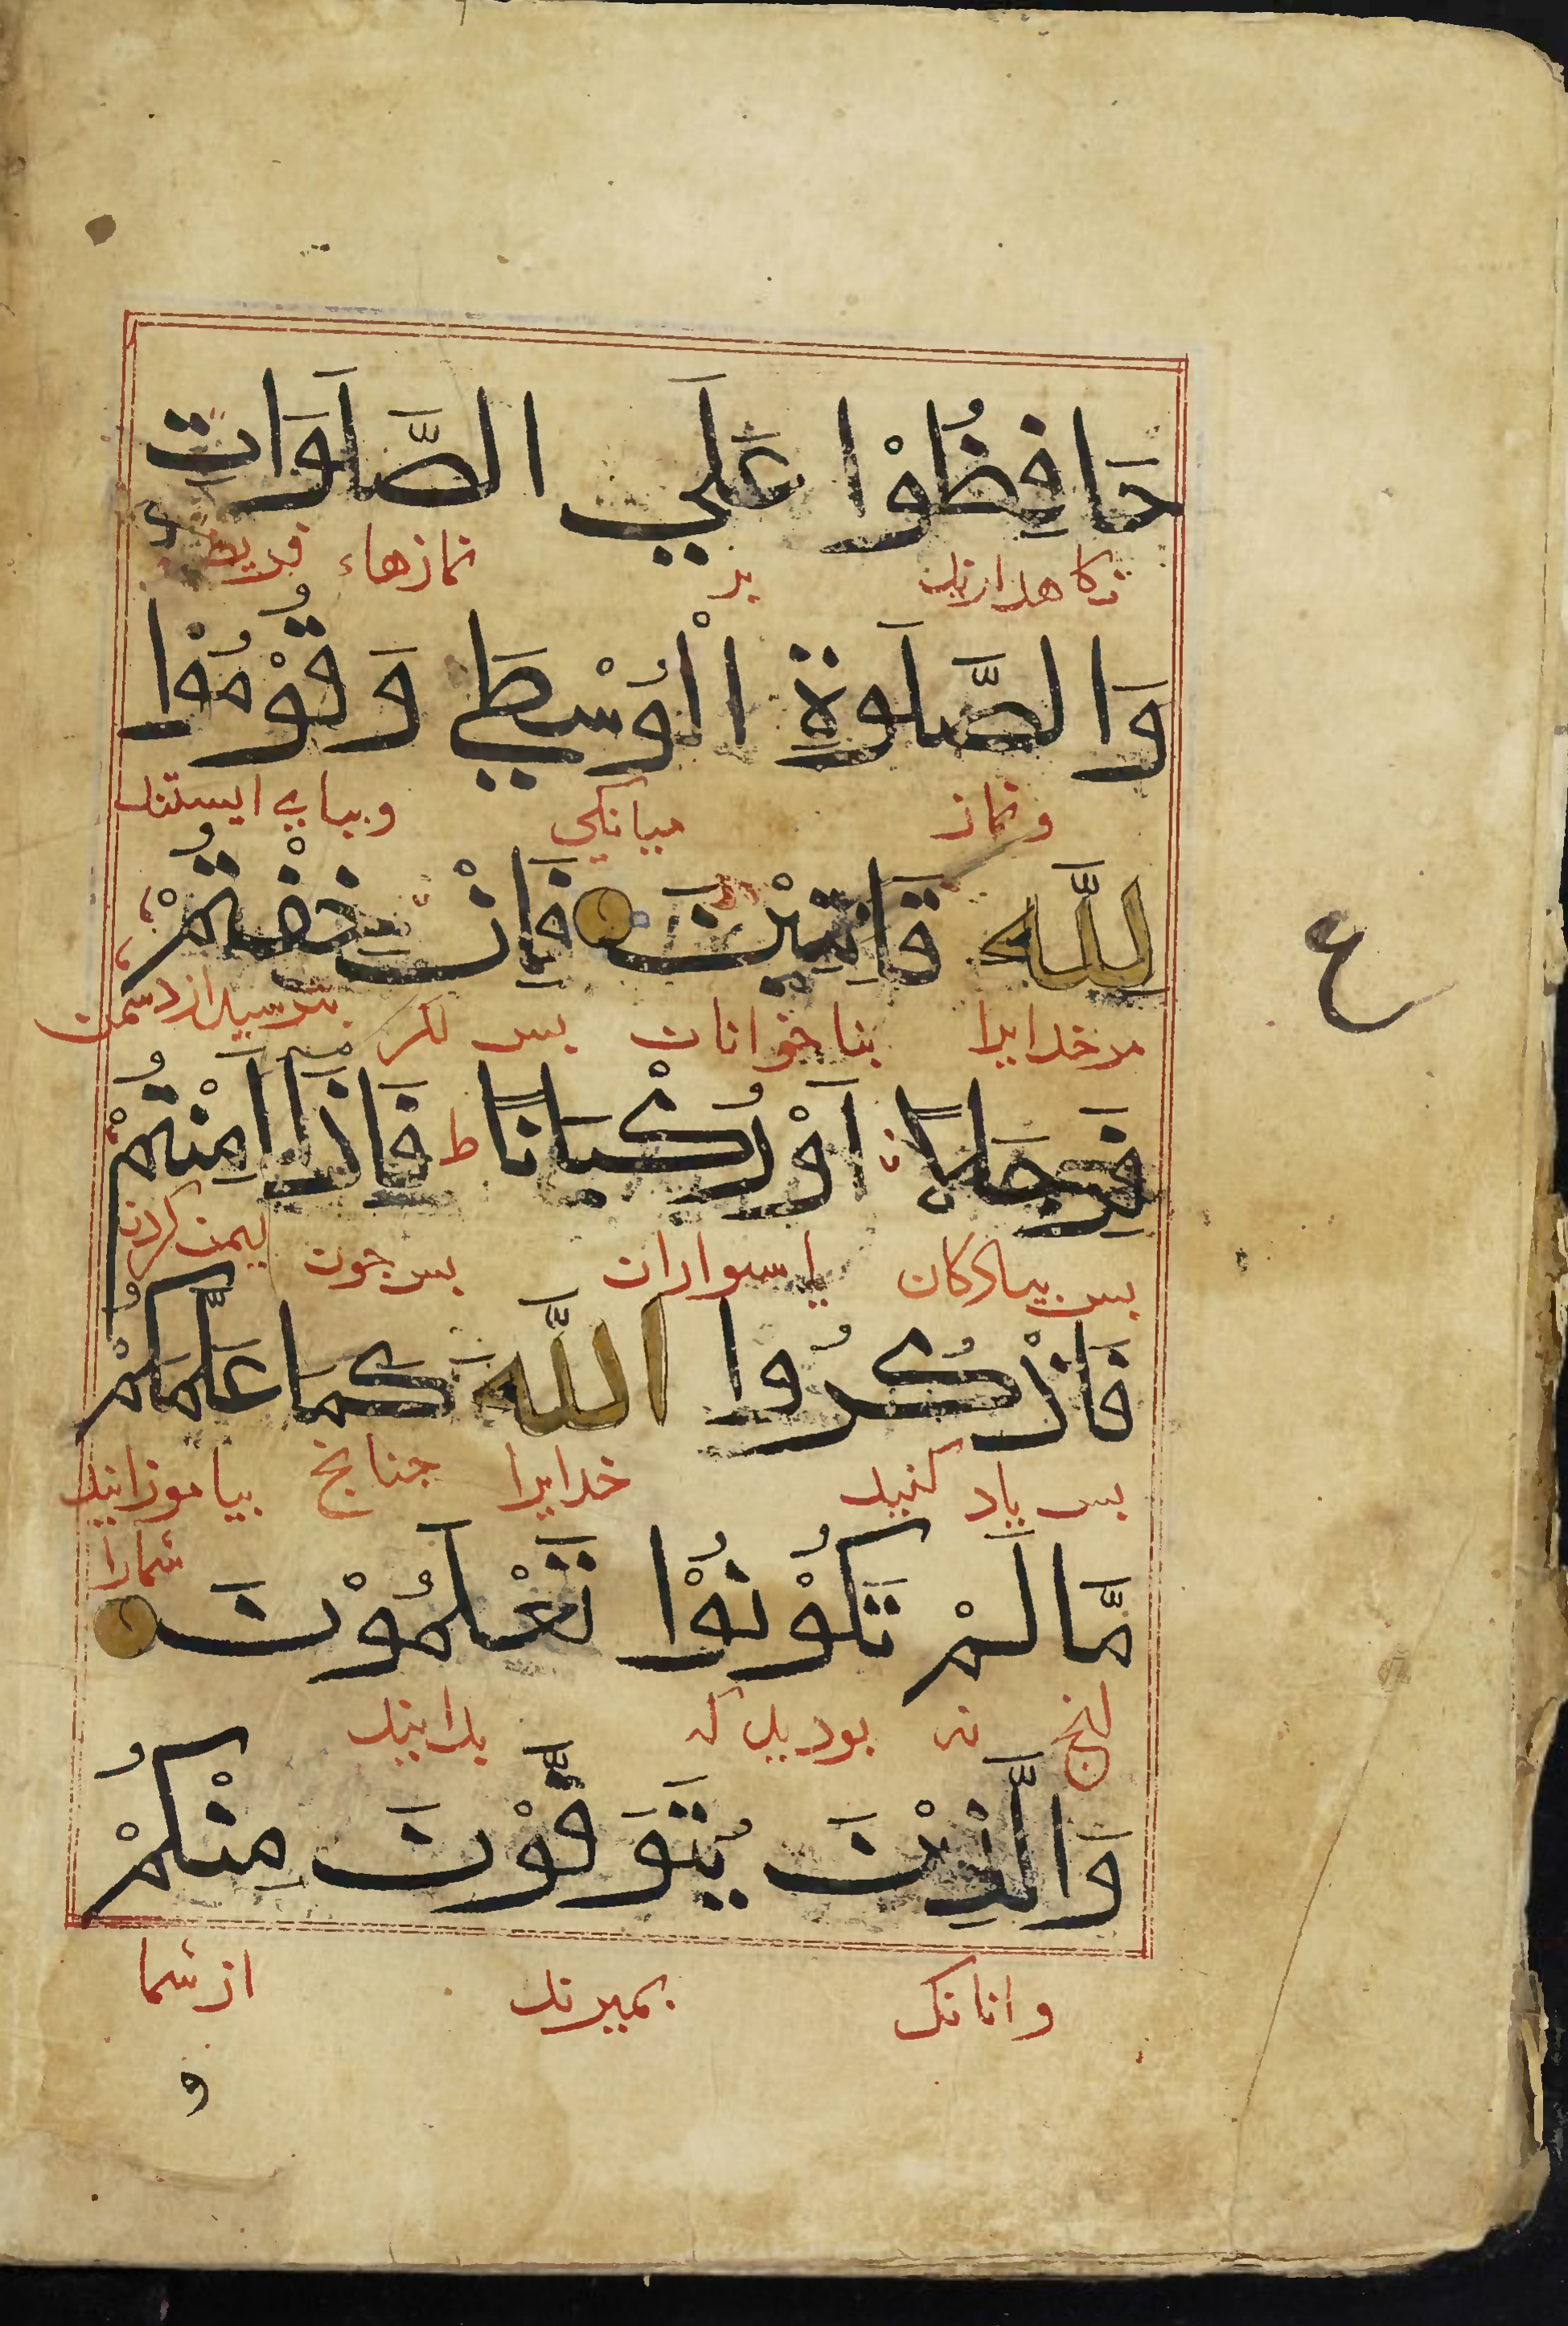 حَافِظُوْا عَلَي الصَّلَوَاتِ
نكاهدارند بر نمازهاء فريضه
وَالصَّلَوةِ الْوُسْطَي وَقُوْمُوْا
ونماز ميانكي وبباي ايستند
لِلَّهِ قَانِتِيْنَ فَاِنْ خِفْتُمْ
ع
مر خدايرا بناخوانان بس اكر بترسيد از دشمن
فَرِجَالًا اَوْ رُكْبَانًا ط فَاِذَا اَمِنْتُمْ
بس بيادكان يا سواران بس جون ايمن كردند
فَاذْكُرُوا اللَّهَ كَمَا عَلَّمَكُمْ
بس ياد كنيد خدايرا جنانج بياموزانيد
شمارا
مَّا لَمْ تَكُوْنُوْا تَعْلَمُوْنَ
انج نه بوديد كه بدانيد
وَالَّذِيْنَ يُتَوَفَّوْنَ مِنْكُمْ
وانانك بميرند از شما
و